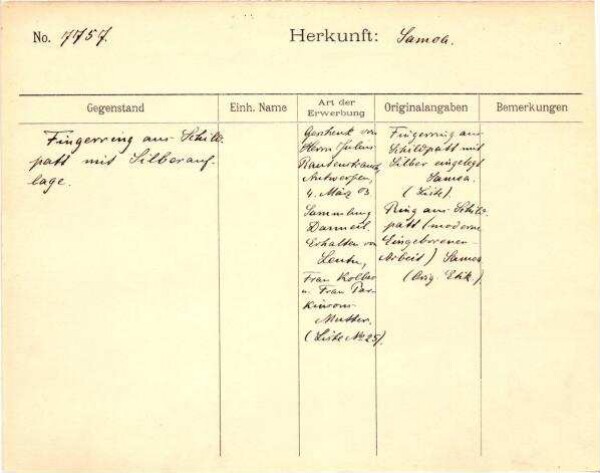 No. 7757.
Herkunft: Samoa.
Gegenstand
Einh. Name
Art der
Erwerbung
Originalangaben
Bemerkungen
Fingerring aus Schild-
patt mit Silberauf-
lage.
Geschenk von
Herrn Julius
Rautenstrauch
Antwerpen,
4. März 03
Sammlung
Danneil.
Erhalten von
Frau Kolbe
u. Frau Par-
kinsons
Mutter.
(Liste No 25).
Fingerring aus
Schildpatt mit
Silber eingelegt
Samoa.
(Liste).
Ring aus Schild-
patt (moderne
Eingeborenen-
Arbeit) Samoa
(Orig. Etik.).